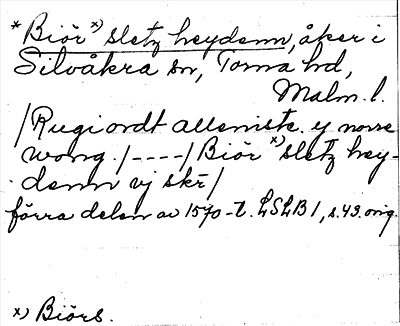 * Biör x) sletz heydenn, åker i
Silvåkra sn, Torna hd,
Malm. l.
/Rugiordt alleniste. y norre
wong./----/Biör x) sletz hey-
denn vj skr/
förra delen av 1570-t. LSLB 1, s. 43. orig.
x) Biörs.